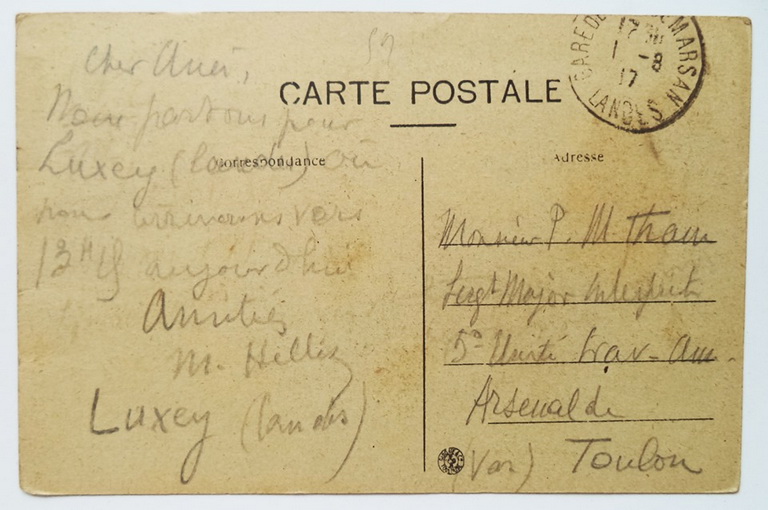 52
CARTE POSTALE
GARE DE MARSAN
1 -8
17
LANDES
Correspondance
Adresse
Cher Ami,
Nous partons pour
Luxey (Landes) où
nous arriverons vers
13H aujourd'hui
Amitiés
M.
Luxey (Landes)
Monsieur P. M. Tham
Sergt Major Interprète
5e Unité Trav- Am.
Arsenal de
(Var) Toulon